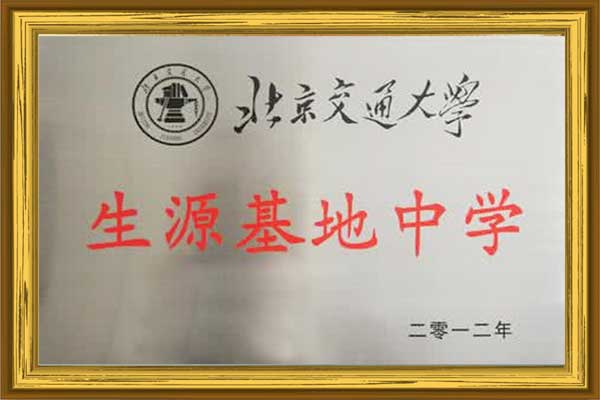 北京交通大學
生源基地中学
二零一二年